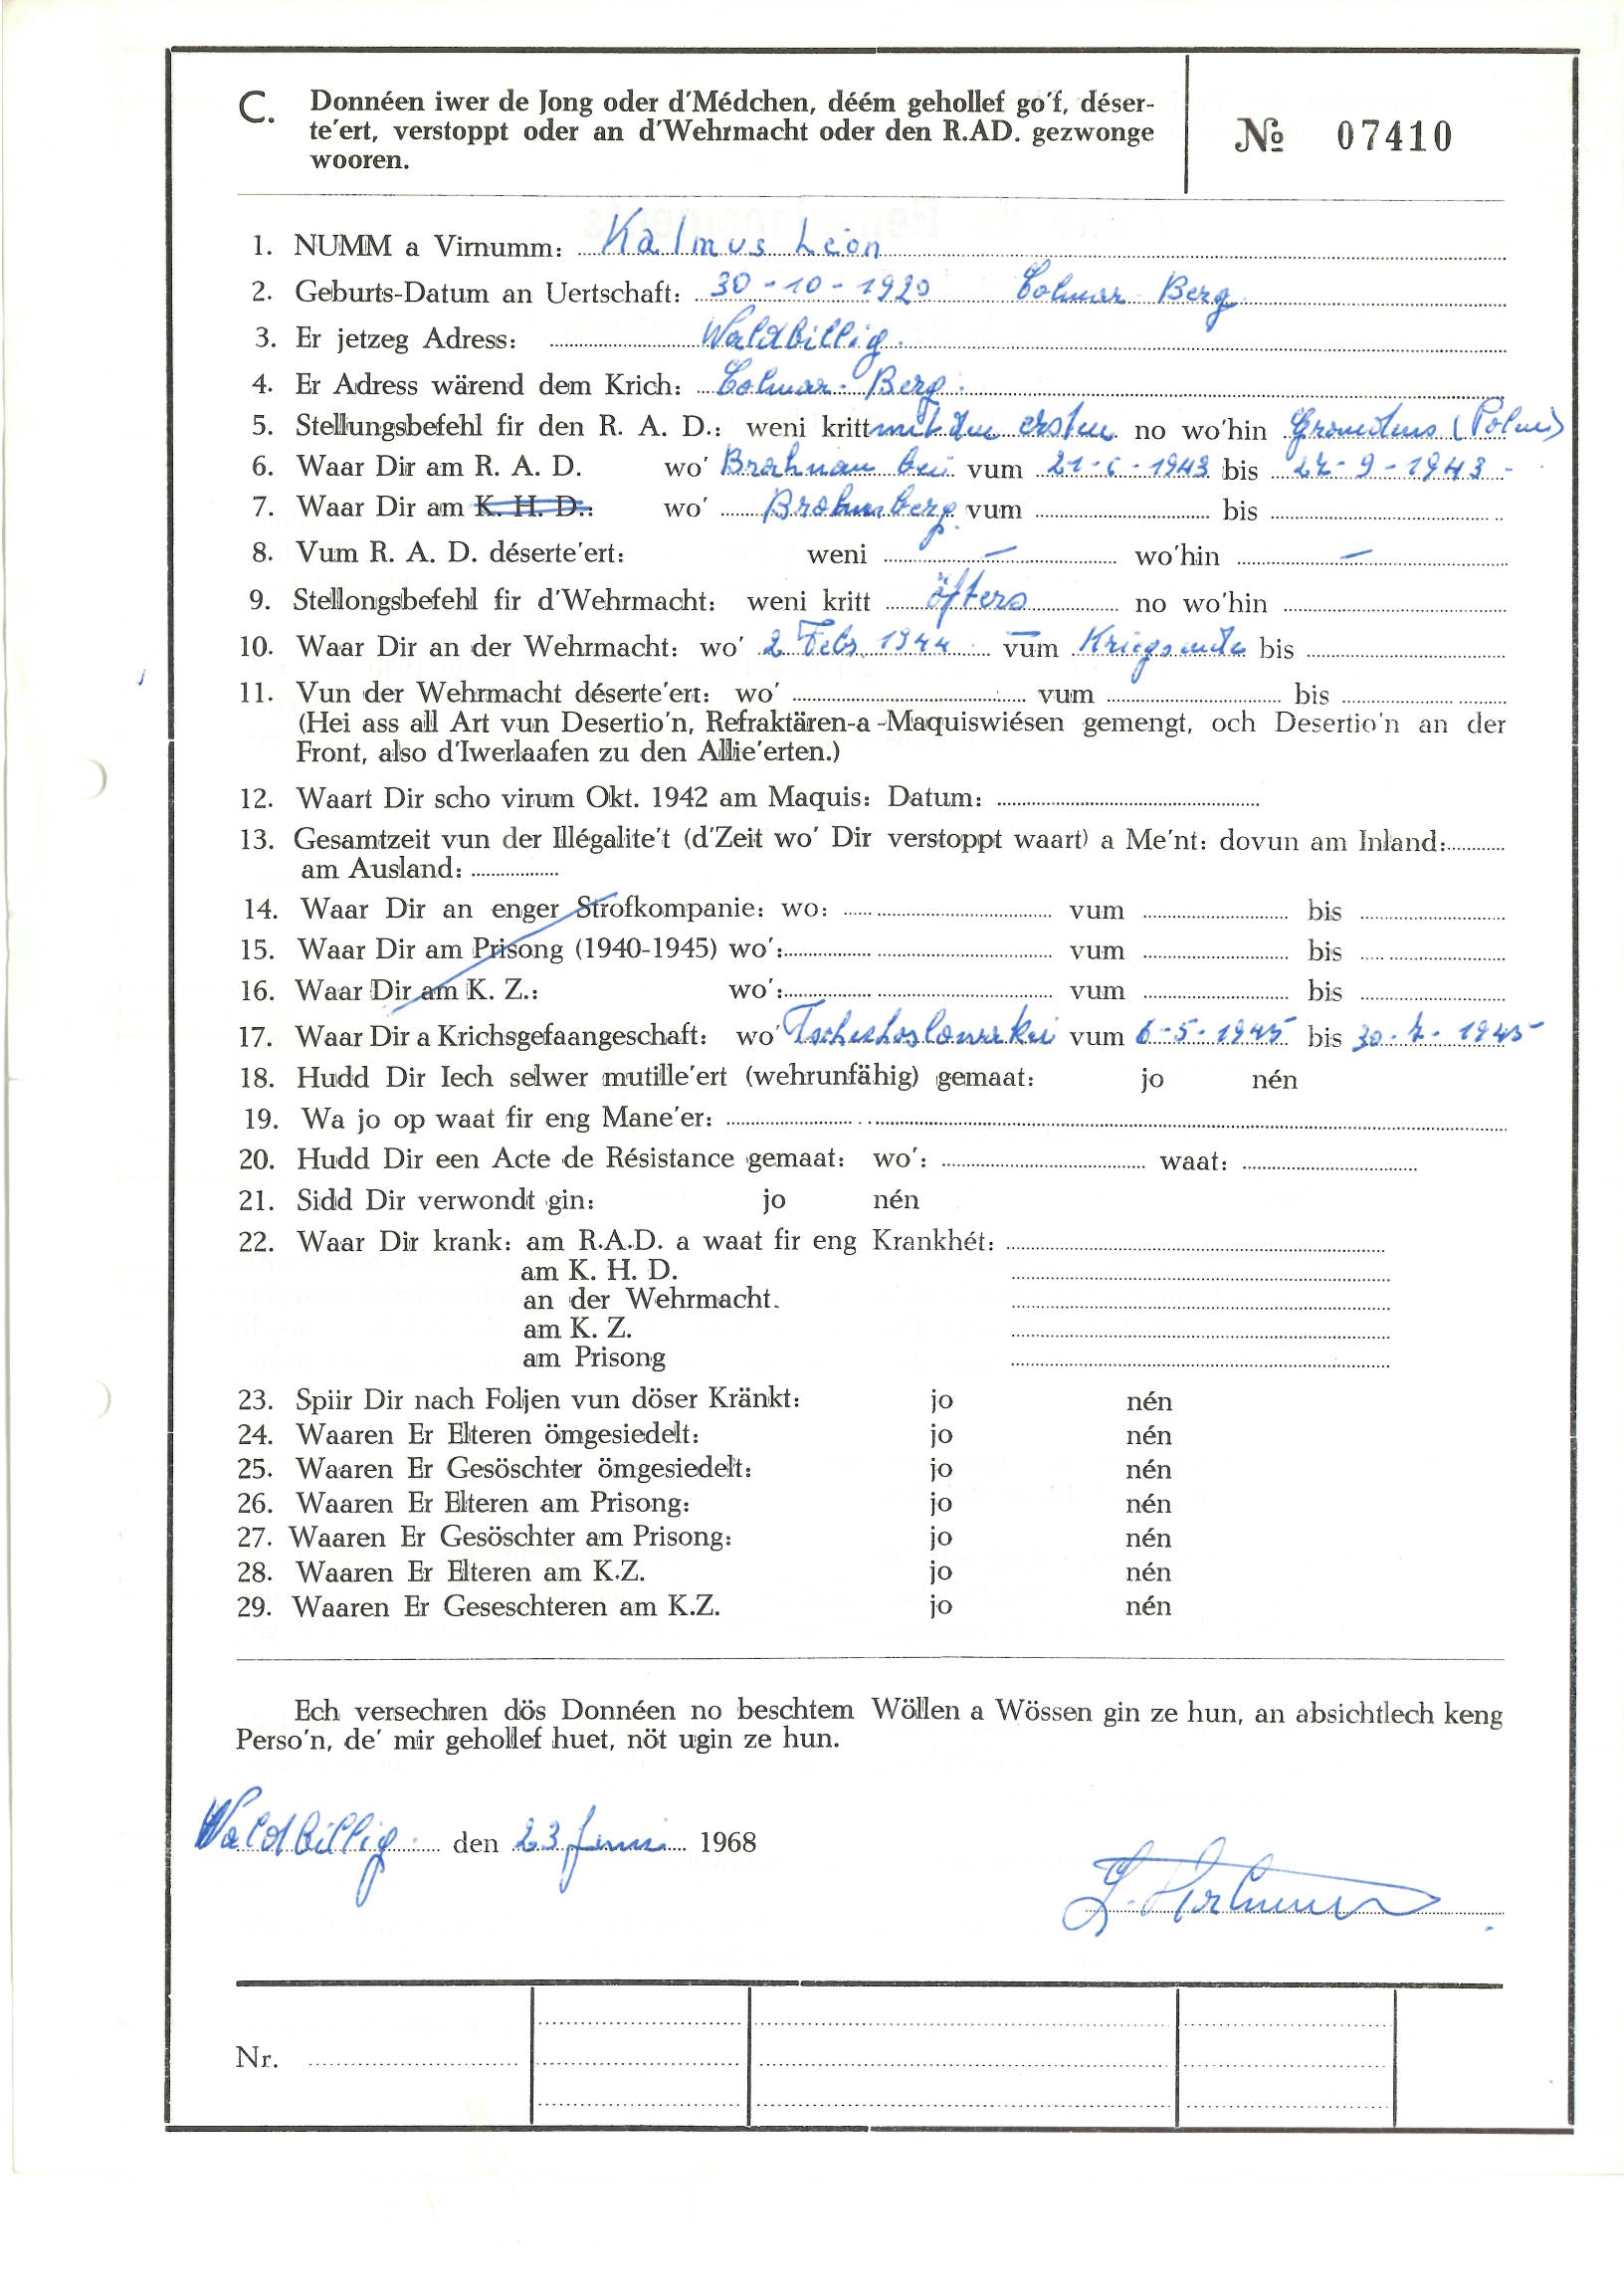 C. Donnéen iwer de Jong oder d'Médchen, déém gehollef go'f, déser-
te'ert, verstoppt oder an d'Wehrmacht oder den R.AD. gezwonge
wooren.
№ 07410
1. NUMM a Virnumm: Kalmus Léon
2. Geburts-Datum an Uertschaft: 30-10-1920 Colmar Berg
3. Er jetzeg Adress: Waldbillig.
4. Er Adress wärend dem Krich: Colmar-Berg.
5. Stellungsbefehl fir den R. A. D.: weni kritt mit den ersten no wo'hin (Polen)
6. Waar Dir am R. A. D. wo' Brahnau bei vum 21-6-1943 bis 27-9-1943-
7. Waar Dir am K. H. D.: wo' Brohmberg. vum bis
8. Vum R. A. D. déserte'ert: weni — wo'hin —
9. Stellongsbefehl fir d'Wehrmacht: weni kritt öfters no wo'hin
10. Waar Dir an der Wehrmacht: wo' 2 Febr. 1944. vum Kriegsende bis
11. Vun der Wehrmacht déserte'ert: wo' vum bis
(Hei ass all Art vun Desertio'n, Refraktären-a-Maquiswiésen gemengt, och Desertio'n an der
Front, also d'Iwerlaafen zu den Allie'erten.)
12. Waart Dir scho virum Okt. 1942 am Maquis: Datum:
13. Gesamtzeit vun der Illégalite't (d'Zeit wo' Dir verstoppt waart) a Me'nt: dovun am Inland:
am Ausland:
14. Waar Dir an enger Strofkompanie: wo: vum bis
15. Waar Dir am Prisong (1940-1945) wo': vum bis
16. Waar Dir am K. Z.: wo': vum bis
17. Waar Dir a Krichsgefaangeschaft: wo' Tschechoslowakei vum 6-5-1945 bis 30-7-1945
18. Hudd Dir Iech selwer mutille'ert (wehrunfähig) gemaat: jo nén
19. Wa jo op waat fir eng Mane'er:
20. Hudd Dir een Acte de Résistance gemaat: wo': waat:
21. Sidd Dir verwondt gin: jo nén
22. Waar Dir krank: am R.A.D. a waat fir eng Krankhét:
am K. H. D.
an der Wehrmacht.
am K. Z.
am Prisong
23. Spiir Dir nach Foljen vun döser Kränkt: jo nén
24. Waaren Er Elteren ömgesiedelt: jo nén
25. Waaren Er Gesöschter ömgesiedelt: jo nén
26. Waaren Er Elteren am Prisong: jo nén
27. Waaren Er Gesöschter am Prisong: jo nén
28. Waaren Er Elteren am K.Z. jo nén
29. Waaren Er Geseschteren am K.Z. jo nén
Ech versechren dös Donnéen no beschtem Wöllen a Wössen gin ze hun, an absichtlech keng
Perso'n, de' mir gehollef huet, nöt ugin ze hun.
Waldbillig. den 23 Juni 1968
Nr.